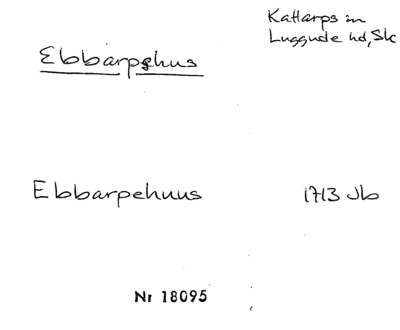 Ebbarpehus
Kattarps sn
Luggude hd, Sk
Ebbarpehuus
1713 Jb
Nr 18095